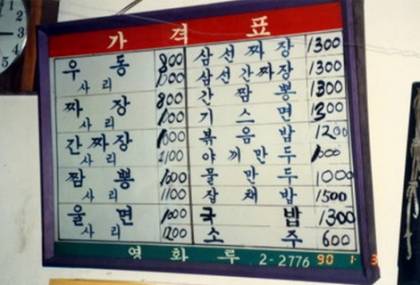 가격표
우동 800
사리
짜장 800
사리
간짜장
사리 1100
짬뽕
사리 1100
울면 1000
사리 1200
삼선짜장 1300
삼선간짜장 1300
간짬뽕 1300
기스면 1300
볶음밥 1200
야끼만두
물만두 1000
잡채밥 1500
국밥 1300
소주 600
2-2776
90 1 3